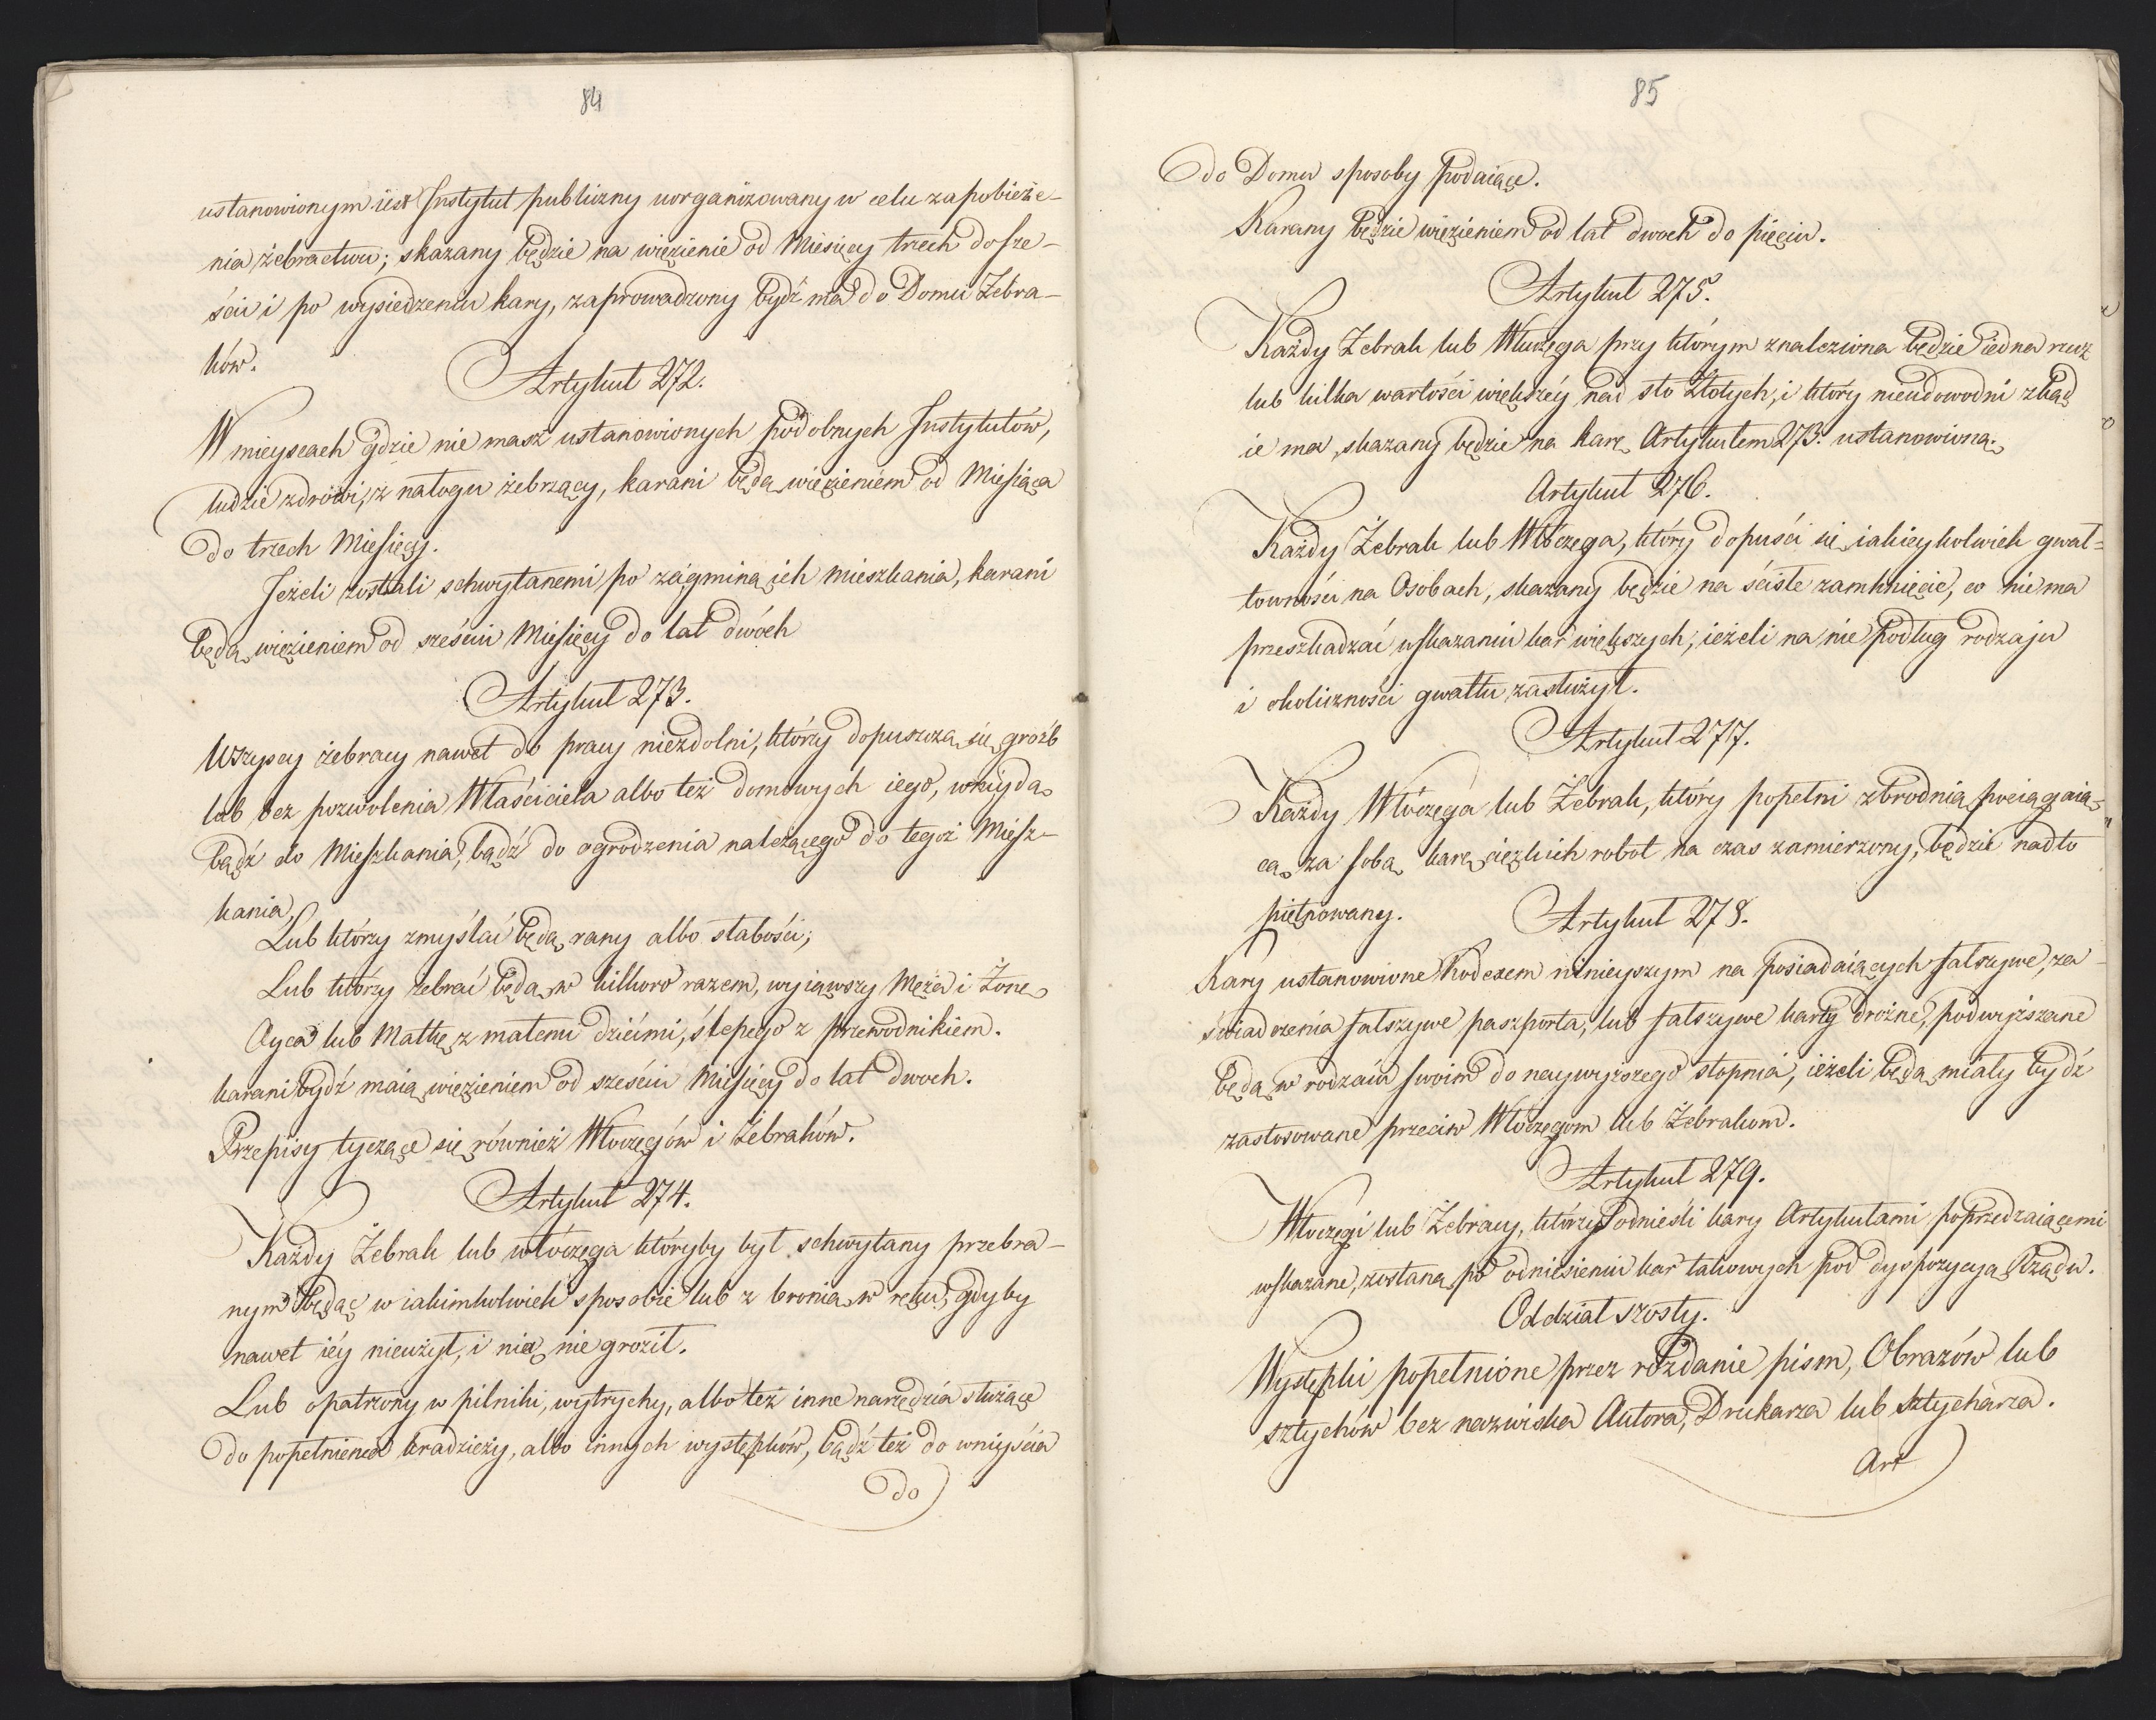 84
ustanowionym iest Instytut publiczny uorganizowany w celu zapobieże-
nia żebractwu; skazany będzie na więzienie od Miesięcy trzech do sze-
ściu i po wysiedzeniu kary, zaprowadzony bydź ma do Domu Żebra-
ków.
Artykuł 272.
W mieyscach gdzie nie masz ustanowionych podobnych Instytutów,
ludzie zdrowi, z nałogu żebrzący, karani będą więzieniem od Miesiąca
do trzech Miesięcy.
Jeżeli zostali schwytanemi po za gminą ich mieszkania, karani
będą więzieniem od sześciu Miesięcy do lat dwóch
Artykuł 273.
Wszyscy żebracy nawet do pracy niezdolni, którzy dopuszczą się gróźb
lub bez pozwolenia Właściciela albo też domowych iego, wniydą
bądź do Mieszkania, bądź do ogrodzenia należącego do tegoż Miesz-
kania,
Lub którzy zmyślać będą rany albo słabości;
Lub którzy żebrać będą w kilkoro razem, wyiąwszy Męża i Żonę
Oyca lub Matkę z małemi dziećmi, ślepego z przewodnikiem.
karani bydź maią więzieniem od sześciu Miesięcy do lat dwoch.
Przepisy tyczące się również Włóczęgów i Żebraków.
Artykuł 274.
Każdy Żebrak lub włóczęga któryby był schwytany przebra-
nym będąc w iakimkolwiek sposobie lub z bronią w ręku, gdyby
nawet iéy nieużył, i nią nie groził.
Lub opatrzony w pilniki, wytrychy, albo też inne narzędzia służące
do popełnienia kradzieży, albo innych występków, bądź też do wniyścia
do
85
do Domu sposoby podaiące.
Karany będzie więzieniem od lat dwoch do pięciu.
Artykuł 275.
Każdy Żebrak lub Włuczęga przy którym znaleziona będzie iedna rzecz
lub kilka wartości większéy nad sto Złotych, i który nieudowodni zkąd
ie ma, skazany będzie na karę Artykułem 273. ustanowioną.
Artykuł 276.
Każdy Żebrak lub Włóczęga, który dopuści się iakieykolwiek gwał=
towności na Osobach, skazany będzie na ściste zamknięcie, co nie ma
przeszkadzać wskazaniu kar większych, ieżeli na nie podług rodzaju
i okoliczności gwałtu zasłużył.
Artykuł 277.
Każdy Włóczęga lub Żebrak, który popełni zbrodnią pociągaią-
cą za sobą karę ciężkich robot na czas zamierzony, będzie nadto
piętnowany.
Artykuł 278.
Kary ustanowione Kodexem ninieyszym na posiadaiących fałszywe za-
świadczenia fałszywe paszporta, lub fałszywe karty drożne, podwyższane
będą w rodzaiu swoim do naywyższego stopnia, ieżeli będą miały bydź
zastosowane przeciw Włóczęgom lub Żebrakom.
Artykuł 279.
Włoczęgi lub Żebracy, którzy odnieśli kary Artykułami poprzedzaiącemi
wskazane, zostaną po odniesieniu kar takowych pod dyspozycyą Rządu.
Oddział szosty.
Występki popełnione przez rozdanie pism, Obrazów lub
sztychów bez nazwiska Autora, Drukarza lub Sztycharza.
Art